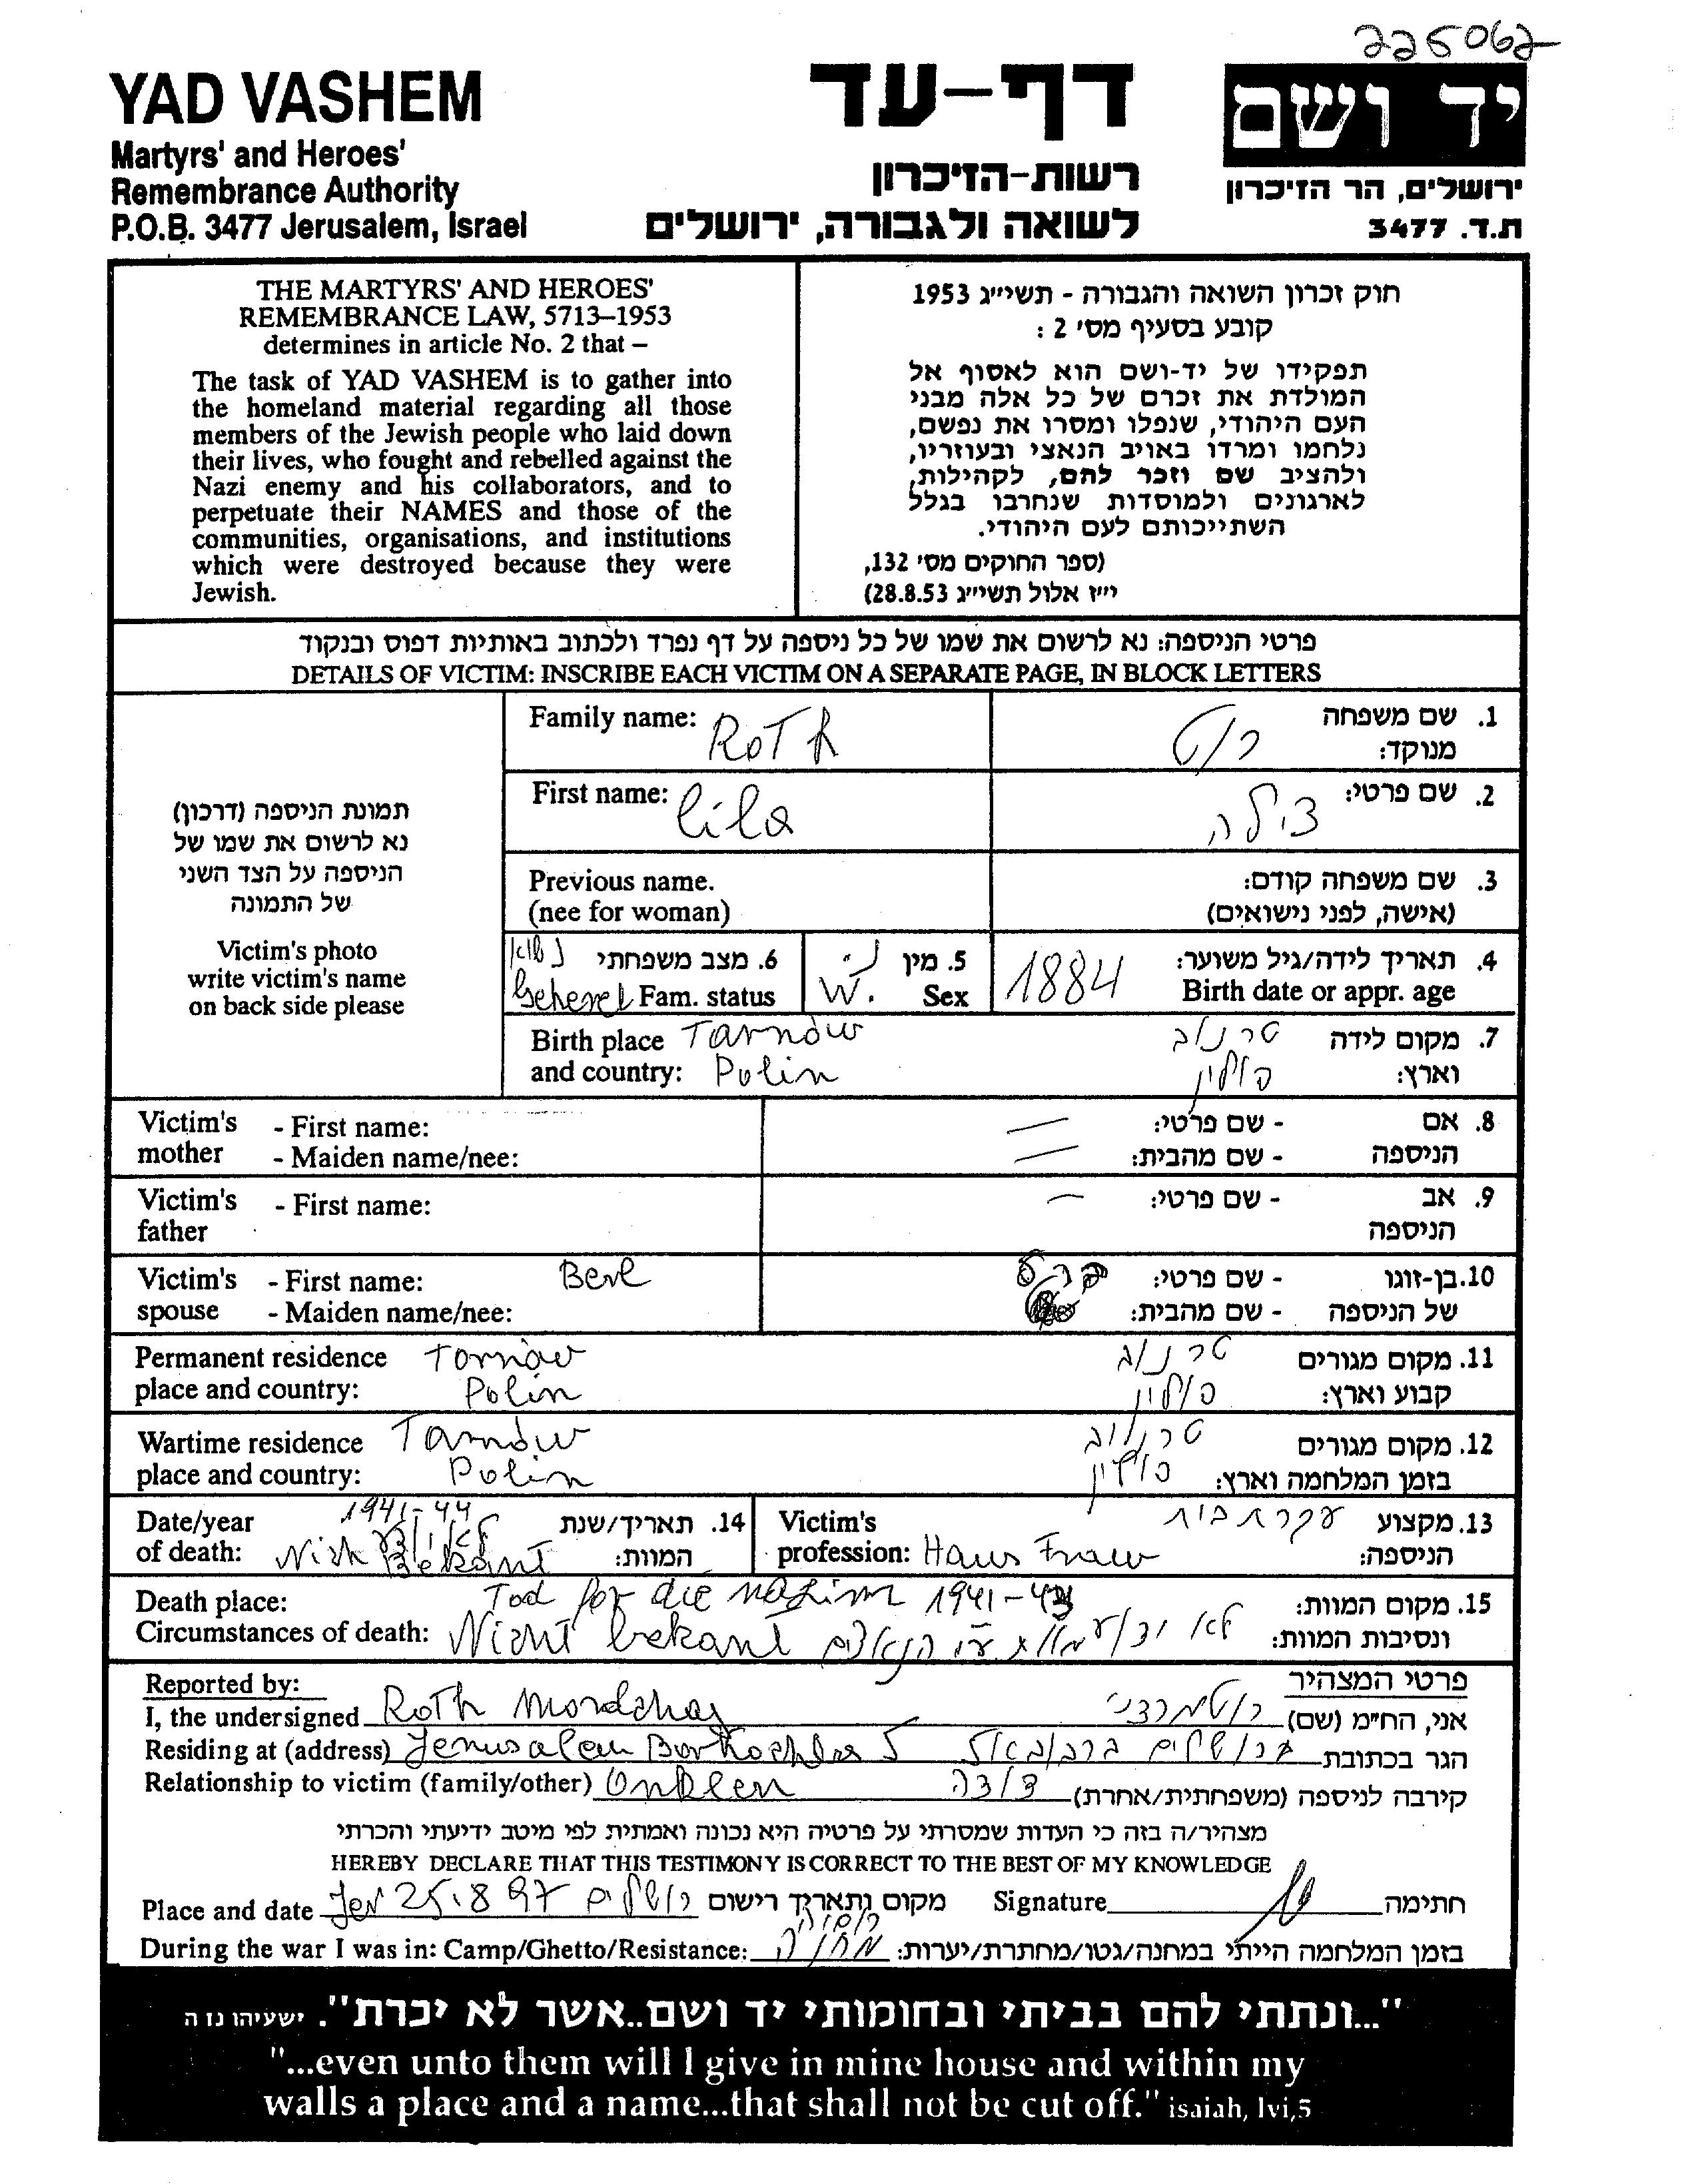 225062
YAD VASHEM
Martyrs' and Heroes'
Remembrance Authority
P.O.B. 3477 Jerusalem, Israel
דף-עד
רשות-הזיכרון
לשואה ולגבורה, ירושלים
יד ושם
ירושלים, הר הזיכרון
ת.ד. 3477
THE MARTYRS' AND HEROES'
REMEMBRANCE LAW, 5713–1953
determines in article No. 2 that –
The task of YAD VASHEM is to gather into
the homeland material regarding all those
members of the Jewish people who laid down
their lives, who fought and rebelled against the
Nazi enemy and his collaborators, and to
perpetuate their NAMES and those of the
communities, organisations, and institutions
which were destroyed because they were
Jewish.
חוק זכרון השואה והגבורה - תשי״ג 1953
קובע בסעיף מס' 2 :
תפקידו של יד-ושם הוא לאסוף אל
המולדת את זכרם של כל אלה מבני
העם היהודי, שנפלו ומסרו את נפשם,
נלחמו ומרדו באויב הנאצי ובעוזריו,
ולהציב שם וזכר להם, לקהילות,
לארגונים ולמוסדות שנחרבו בגלל
השתייכותם לעם היהודי.
(ספר החוקים מס' 132,
י״ז אלול תשי״ג 28.8.53)
פרטי הניספה: נא לרשום את שמו של כל ניספה על דף נפרד ולכתוב באותיות דפוס ובנקוד
DETAILS OF VICTIM: INSCRIBE EACH VICTIM ON A SEPARATE PAGE, IN BLOCK LETTERS
תמונת הניספה (דרכון)
נא לרשום את שמו של
הניספה על הצד השני
של התמונה
Victim's photo
write victim's name
on back side please
Family name: RoTh רוט 1. שם משפחה
מנוקד:
First name: Cila צילה 2. שם פרטי:
Previous name. 3. שם משפחה קודם:
(nee for woman) (אישה, לפני נישואים)
נשוא 6. מצב משפחתי נ. 5. מין 4. תאריך לידה/גיל משוער:
Fam. status W. Sex 1884 Birth date or appr. age
Birth place Tarnow טרנוב 7. מקום לידה
and country: Polin פולין וארץ:
Victim's - First name: - שם פרטי: 8. אם
mother - Maiden name/nee: - שם מהבית: הניספה
Victim's - First name: - שם פרטי: 9. אב
father הניספה
Victim's - First name: Berl ברל - שם פרטי: 10. בן-זוגו
spouse - Maiden name/nee: - שם מהבית: של הניספה
Permanent residence Tornow טרנוב 11. מקום מגורים
place and country: Polin פולין קבוע וארץ:
Wartime residence Tarnow טרנוב 12. מקום מגורים
place and country: Polin פולין בזמן המלחמה וארץ:
Date/year 1941-44 14. תאריך/שנת
of death: Nicht Bekant המוות:
Victim's עקרת בית 13. מקצוע
profession: Haus Fraw הניספה:
Death place: Tod for die nazim 1941-43 15. מקום המוות:
Circumstances of death: Nicht bekant לא ידוע הנאצים ונסיבות המוות:
Reported by: פרטי המצהיר
I, the undersigned Roth Mordchay רוט מרדכי אני, הח״מ (שם)
Residing at (address) Jerusalem Bar Kochba 5 ירושלים ברכוכבא 5 הגר בכתובת
Relationship to victim (family/other) Onklen דודה קירבה לניספה (משפחתית/אחרת)
מצהיר/ה בזה כי העדות שמסרתי על פרטיה היא נכונה ואמתית לפי מיטב ידיעתי והכרתי
HEREBY DECLARE THAT THIS TESTIMONY IS CORRECT TO THE BEST OF MY KNOWLEDGE
Place and date Jer 25.8 97 ירושלים מקום ותאריך רישום Signature חתימה
During the war I was in: Camp/Ghetto/Resistance: מחנה בזמן המלחמה הייתי במחנה/גטו/מחתרת/יערות:
"...ונתתי להם בביתי ובחומותי יד ושם..אשר לא יכרת". ישעיהו נז ה
"...even unto them will I give in mine house and within my
walls a place and a name...that shall not be cut off." isaiah, lvi,5